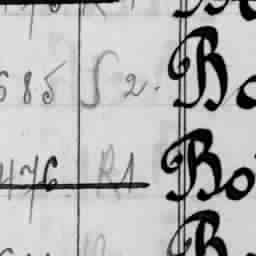 685 S 2. Bo
476 R1 Bo